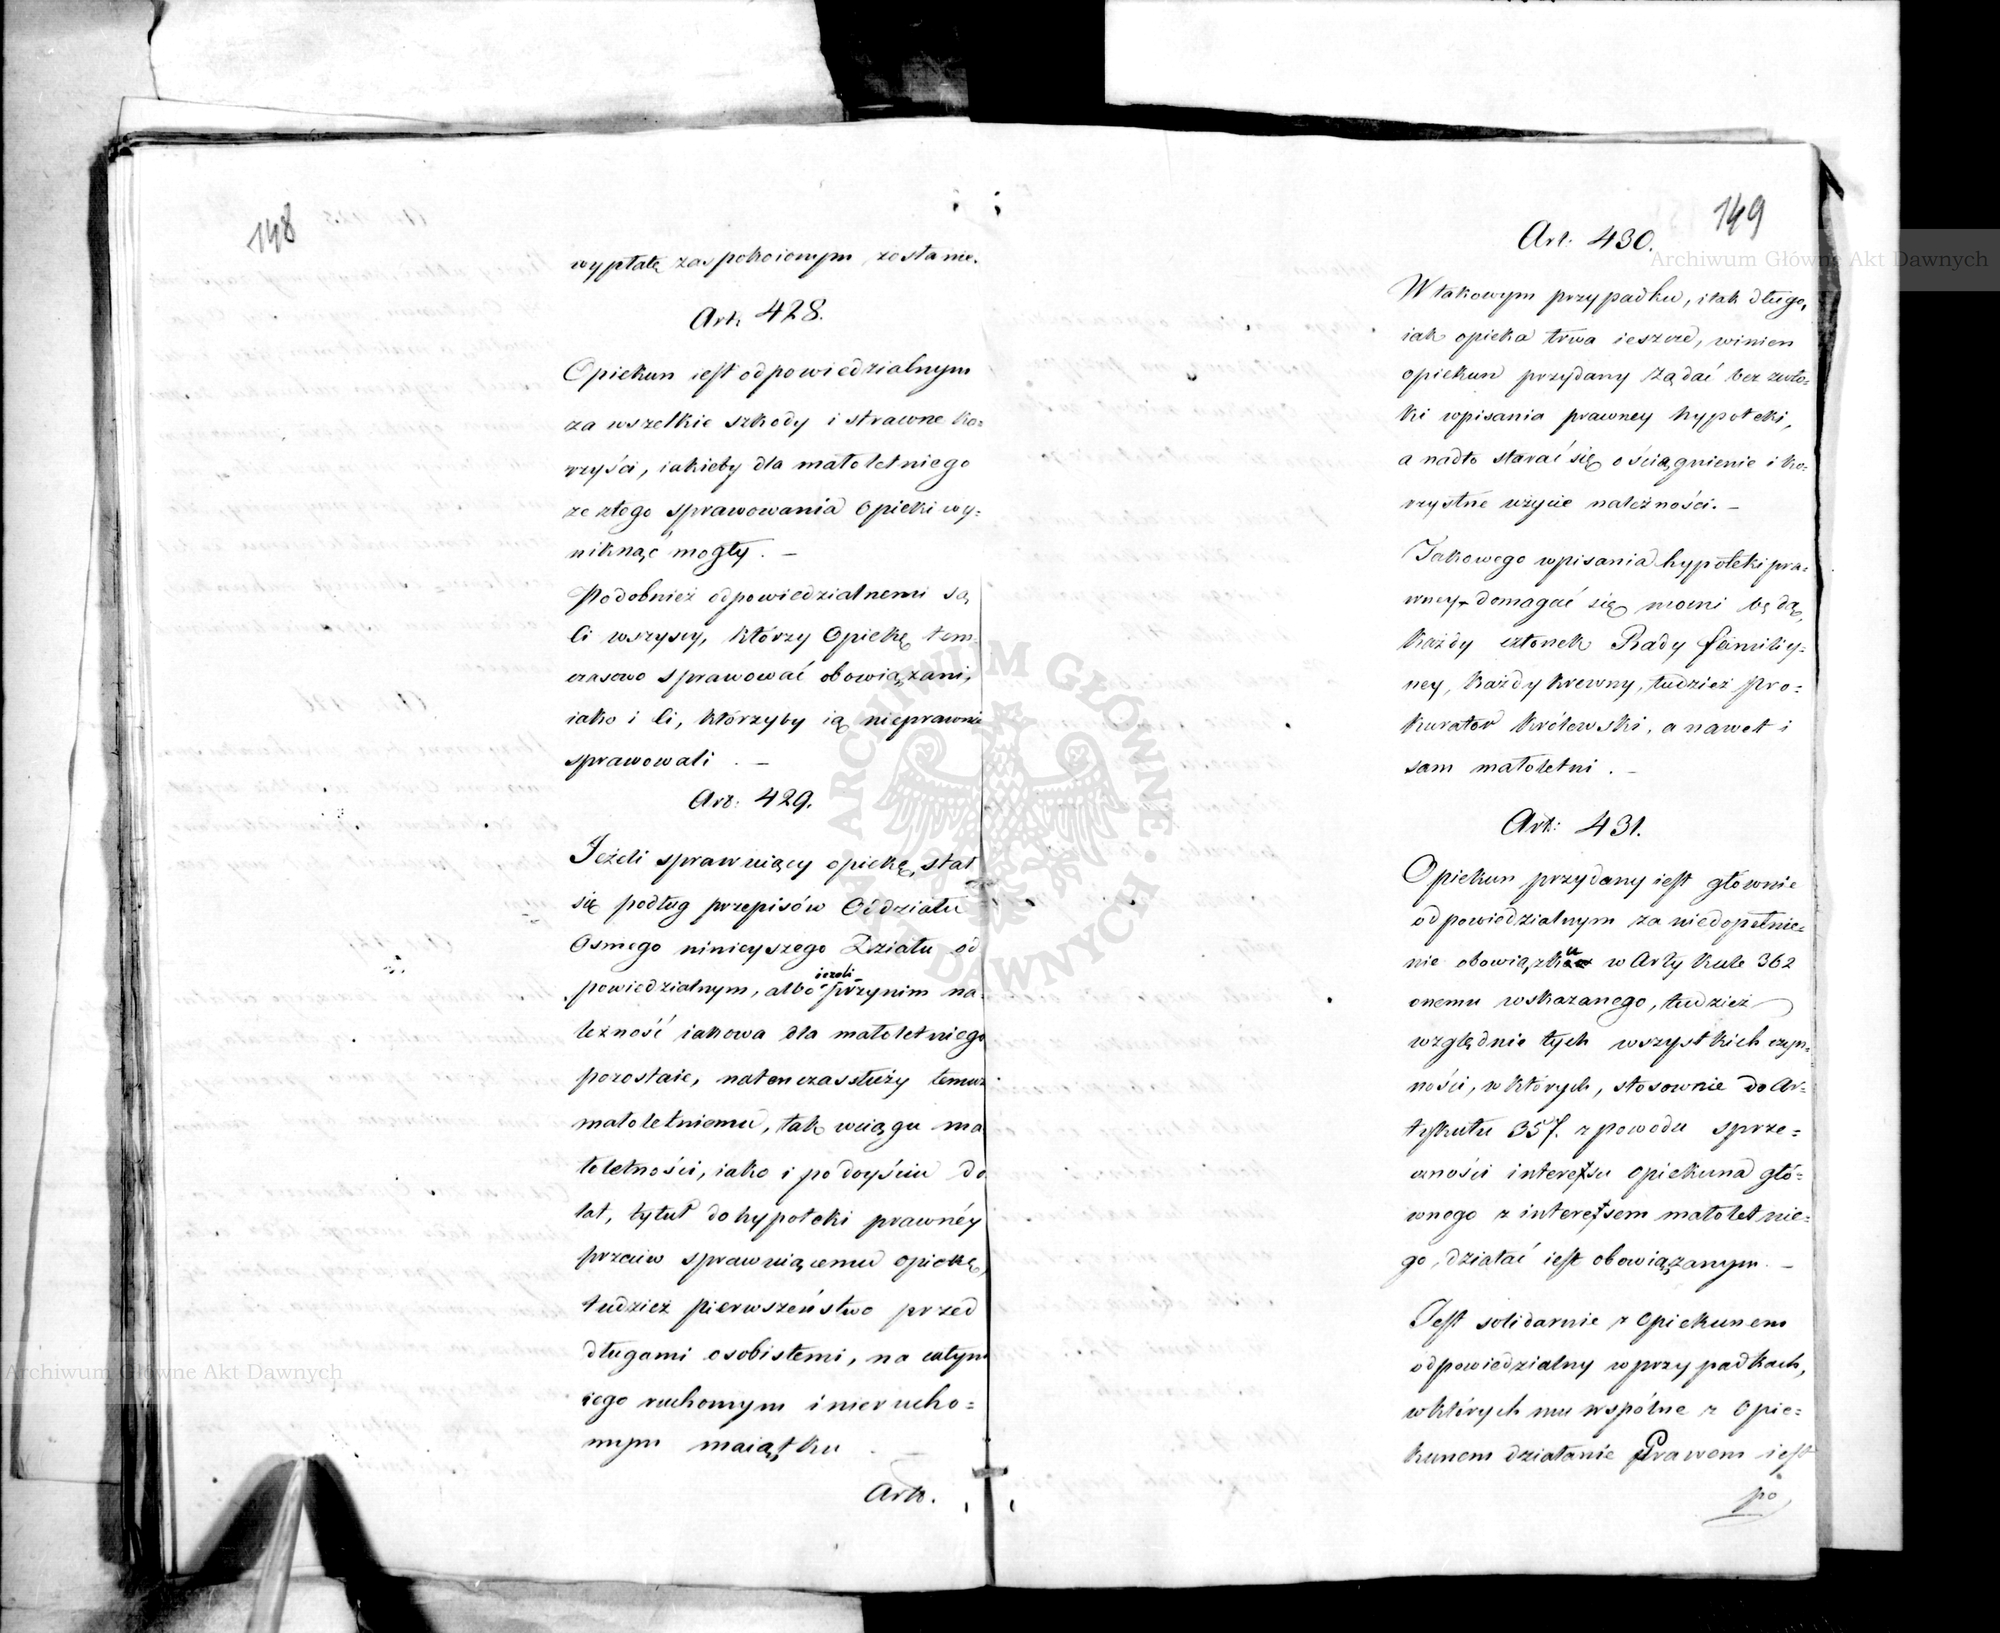 148
wypłatę zaspokoionym zostanie.
Art. 428.
Opiekun iest odpowiedzialnym
za wszelkie szkody i stracone ko=
rzyści, iakieby dla małoletniego
ze złego sprawowania Opieki wy=
niknąć mogły. —
Podobnież odpowiedzialnemi są
Ci wszyscy, którzy Opiekę tym
czasowo sprawować obowiązani,
iako i Ci, którzyby ią nieprawnie
sprawowali. —
Art: 429.
Jeżeli sprawuiący opiekę, stał
się podług przepisów Oddziału
Osmego ninieyszego Działu od
powiedzialnym, albo ieżeli przy nim na=
leżność iakowa dla małoletniego
pozostaie, natenczas służy temuż
małoletniemu, tak wciągu ma
łoletności, iako i po doyściu do
lat, tytuł do hypoteki prawnéy
przeciw sprawuiącemu opiekę,
tudzież pierwszeństwo przed
długami osobistemi, na całym
iego ruchomym i nierucho=
mym maiątku. —
Art.
149
Art. 430.
W takowym przypadku, i tak długo,
iak opieka trwa ieszcze, winien
opiekun przydany żądać bez zwło=
ki wpisania prawney hypoteki,
a nadto starać się o ściągnienie i ko=
rzystne użycie należności. —
Takowego wpisania hypoteki pra=
wney domagać się mocni będą,
każdy członek Rady familiy=
ney, każdy krewny, tudzież Pro=
kurator Królewski, a nawet i
sam małoletni. —
Art: 431.
Opiekun przydany iest głownie
odpowiedzialnym za niedopełnie=
nie obowiązku w Artykule 362
onemu wskazanego, tudzież
względnie tych wszystkich czyn=
ności, w których, stosownie do Ar=
tykułu 357. z powodu sprze=
czności interessu opiekuna głó=
wnego z interessem małoletnie=
go, działać iest obowiązanym. —
Jest solidarnie z Opiekunem
odpowiedzialny w przypadkach,
w których mu wspólne z Opie=
kunem działanie Prawem iest
po
ARCHIWUM GŁÓWNE AKT DAWNYCH
Archiwum Główne Akt Dawnych
Archiwum Główne Akt Dawnych